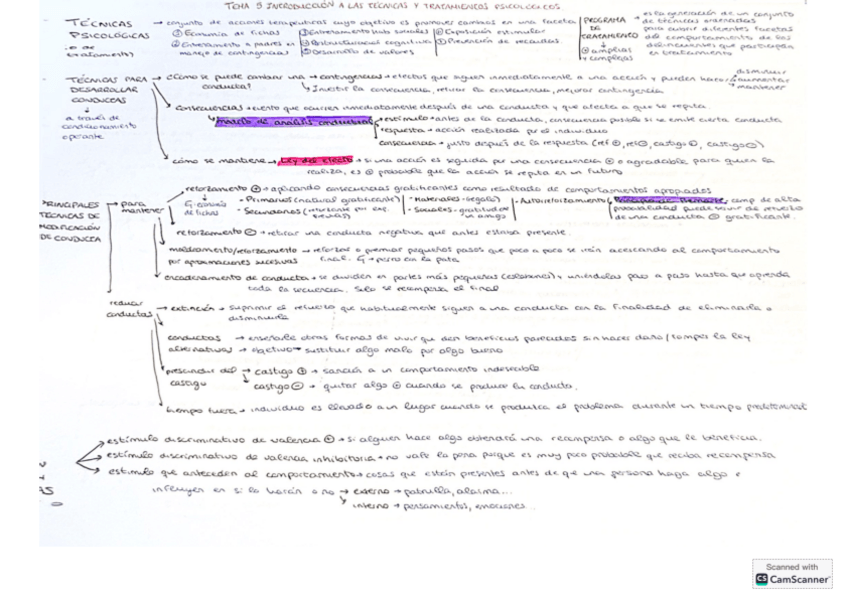 TEMA 5 INTRODUCCIÓN A LAS TÉCNICAS Y TRATAMIENTOS PSICOLÓGICOS
TÉCNICAS PSICOLÓGICAS (o de tratamiento) → conjunto de acciones terapéuticas cuyo objetivo es promover cambios en una faceta
① Economía de fichas ③ Entrenamiento hab sociales ⑥ Exposición estimular
② Entrenamiento a padres en manejo de contingencias ④ Reestructuración cognitiva ⑦ Prevención de recaídas
⑤ Desarrollo de valores
PROGRAMA DE TRATAMIENTO → es la generación de un conjunto de técnicas ordenadas para cubrir diferentes facetas del comportamiento de los delincuentes que participan en tratamiento
⊕ amplias y complejas
TÉCNICAS PARA DESARROLLAR CONDUCTAS
↓
a través de condicionamiento operante
→ ¿Cómo se puede cambiar una conducta? → contingencias → efectos que siguen inmediatamente a una acción y pueden hacer disminuir aumentar mantener
↳ Invertir la consecuencia, retirar la consecuencia, mejorar contingencia
consecuencias → evento que ocurren inmediatamente después de una conducta y que afecta a que se repita.
↳ modelo de análisis conductual → estímulo → antes de la conducta, consecuencia posible si se emite cierta conducta
respuesta → acción realizada por el individuo
consecuencia → justo después de la respuesta (ref ⊕, ref ⊖, castigo ⊕, castigo ⊖)
cómo se mantiene → Ley del efecto → si una acción es seguida por una consecuencia ⊕ o agradable para quien la
realiza, es ⊕ probable que la acción se repita en un futuro
PRINCIPALES TÉCNICAS DE MODIFICACIÓN DE CONDUCTA
→ para mantener
reforzamiento ⊕ → aplicando consecuencias gratificantes como resultado de comportamientos apropiados
↳ economía de fichas
- Primarios (natural gratificante)
- Secundarios (
- Materiales → regalo
- Sociales → gratitud de un amigo
- Autorreforzamiento
Principio de Premack → comp de alta probabilidad puede servir de refuerzo de una conducta ⊖ gratificante.
reforzamiento ⊖ → retirar una conducta negativa que antes estaba presente.
moldeamiento/reforzamiento por aproximaciones sucesivas → reforzar o premiar pequeños pasos que poco a poco se irán acercando al comportamiento
final. ↳ perro con la pata
encadenamiento de conducta → se dividen en partes más pequeñas (eslabones) y uniéndolas paso a paso hasta que aprenda
toda la secuencia. Solo se recompensa el final
reducir conductas
→ extinción → suprimir el refuerzo que habitualmente sigue a una conducta con la finalidad de eliminarla o
disminuirla
conductas alternativas → enseñarle otras formas de vivir que den beneficios parecidos sin hacer daño / romper la ley
→ objetivo → sustituir algo malo por algo bueno
prescindir del castigo → castigo ⊕ → sanción a un comportamiento indeseable
castigo ⊖ → quitar algo ⊕ cuando se produce la conducta.
tiempo fuera → individuo es llevado a un lugar cuando se produzca el problema durante un tiempo
estímulo discriminativo de valencia ⊕ → si alguien hace algo obtendrá una recompensa o algo que le beneficia.
estímulo discriminativo de valencia inhibitoria → no vale la pena porque es muy poco probable que reciba recompensa
estímulo que anteceden al comportamiento → cosas que están presentes antes de que una persona haga algo e
influyen en si lo harán o no → externo → patrulla, alarma...
↳ interno → pensamientos, emociones...
Scanned with
CS CamScanner